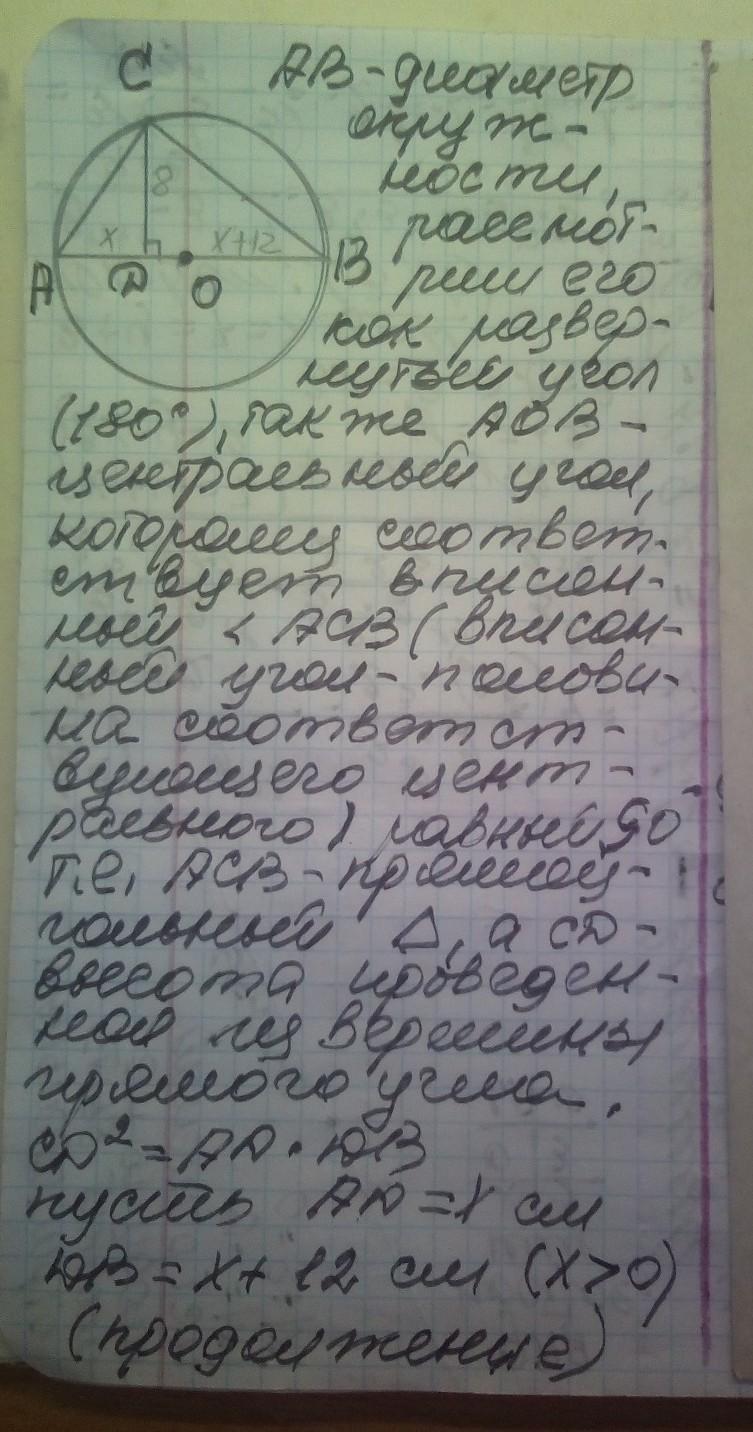 C
8
x
x+12
A
D
O
B
AB-диаметр
окруж-
ности,
рассмот-
рим его
как развер-
нутый угол
(180°), также AOB-
центральный угол,
которому соответ-
ствует вписан-
ный < ACB (вписан-
ный угол-полови-
на соответст-
вующего цент-
рального) равный 90°
т.е. ACB-прямоу-
гольный Δ, а CD-
высота проведен-
ная из вершины
прямого угла.
CD²=AD·DB
пусть AD=x см
DB=x+12 см (x>0)
(продолжение)